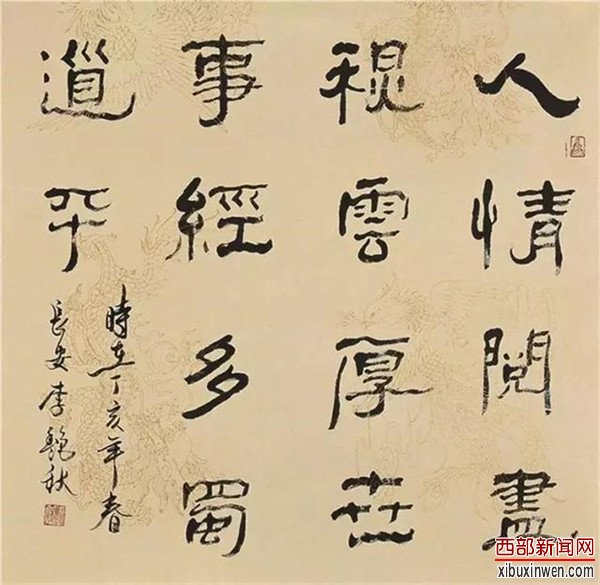 人情閱盡
雲厚世
事經多蜀
道平
時在丁亥年春
長安李秋
西部新闻网
xibuxinwen.com